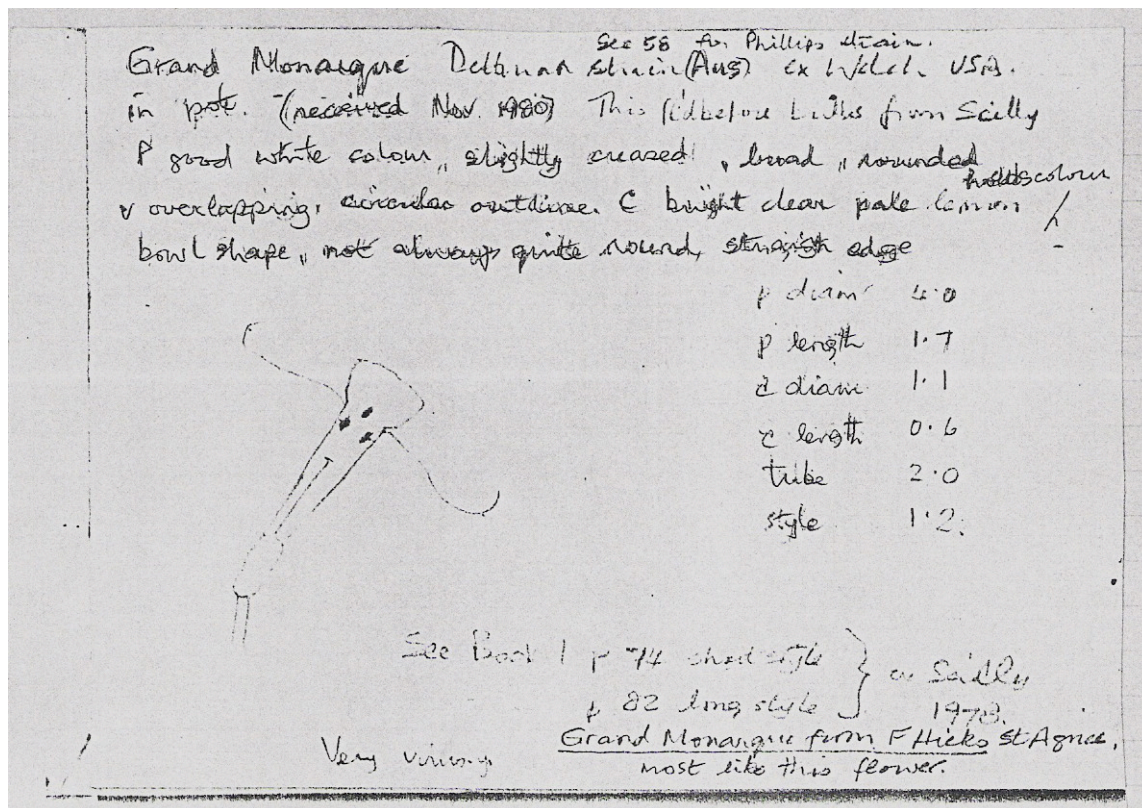 See 58 for Phillips strain.
Grand Monarque Delbman strain (Aus) ex Welch. USA.
in pot. (received Nov. 1980) This fld before bulbs from Scilly
P good white colour, slightly creased, broad, rounded
holds colour
v overlapping, circular outline. C bright clear pale lemon
bowl shape, not always quite round, straight edge
p diam 4.0
p length 1.7
c diam 1.1
c length 0.6
tube 2.0
style 1.2.
See Book 1 p 74 short style
p 82 long style
Scilly
1978.
Grand Monarque from F Hicks St Agnes,
most like this flower.
Very